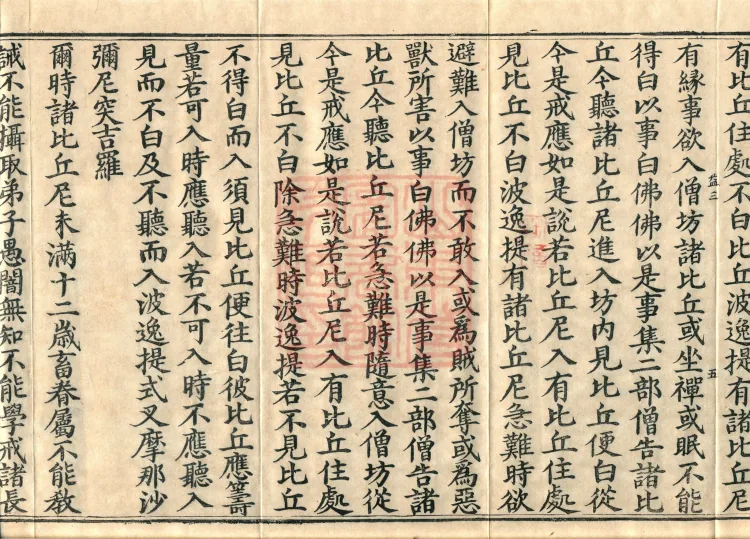 有比丘住處不白波逸提有諸比丘尼
有緣事欲入僧坊諸比丘或坐禪或眠不能
得白以事白佛佛以是事集二部僧告諸比
丘今聽諸比丘尼進入坊內見比丘便白從
今是戒應如是說若比丘尼入有比丘住處
見比丘不白波逸提有諸比丘尼急難時欲
避難入僧坊而不敢入或為賊所奪或為惡
獸所害以事白佛佛以是事集二部僧告諸
比丘今聽比丘尼若急難時隨意入僧坊從
今是戒應如是說若比丘尼入有比丘住處
見比丘不白除急難時波逸提若不見比丘
不得白而入須見比丘便往白彼比丘應籌
量若可入時應聽入若不可入時不應聽入
見而不白及不聽而入波逸提式叉摩那沙
彌尼突吉羅
爾時諸比丘尼未滿十二歲畜眷屬不能教
誡不能攝取弟子愚闇無知不能學戒諸長
益三
五